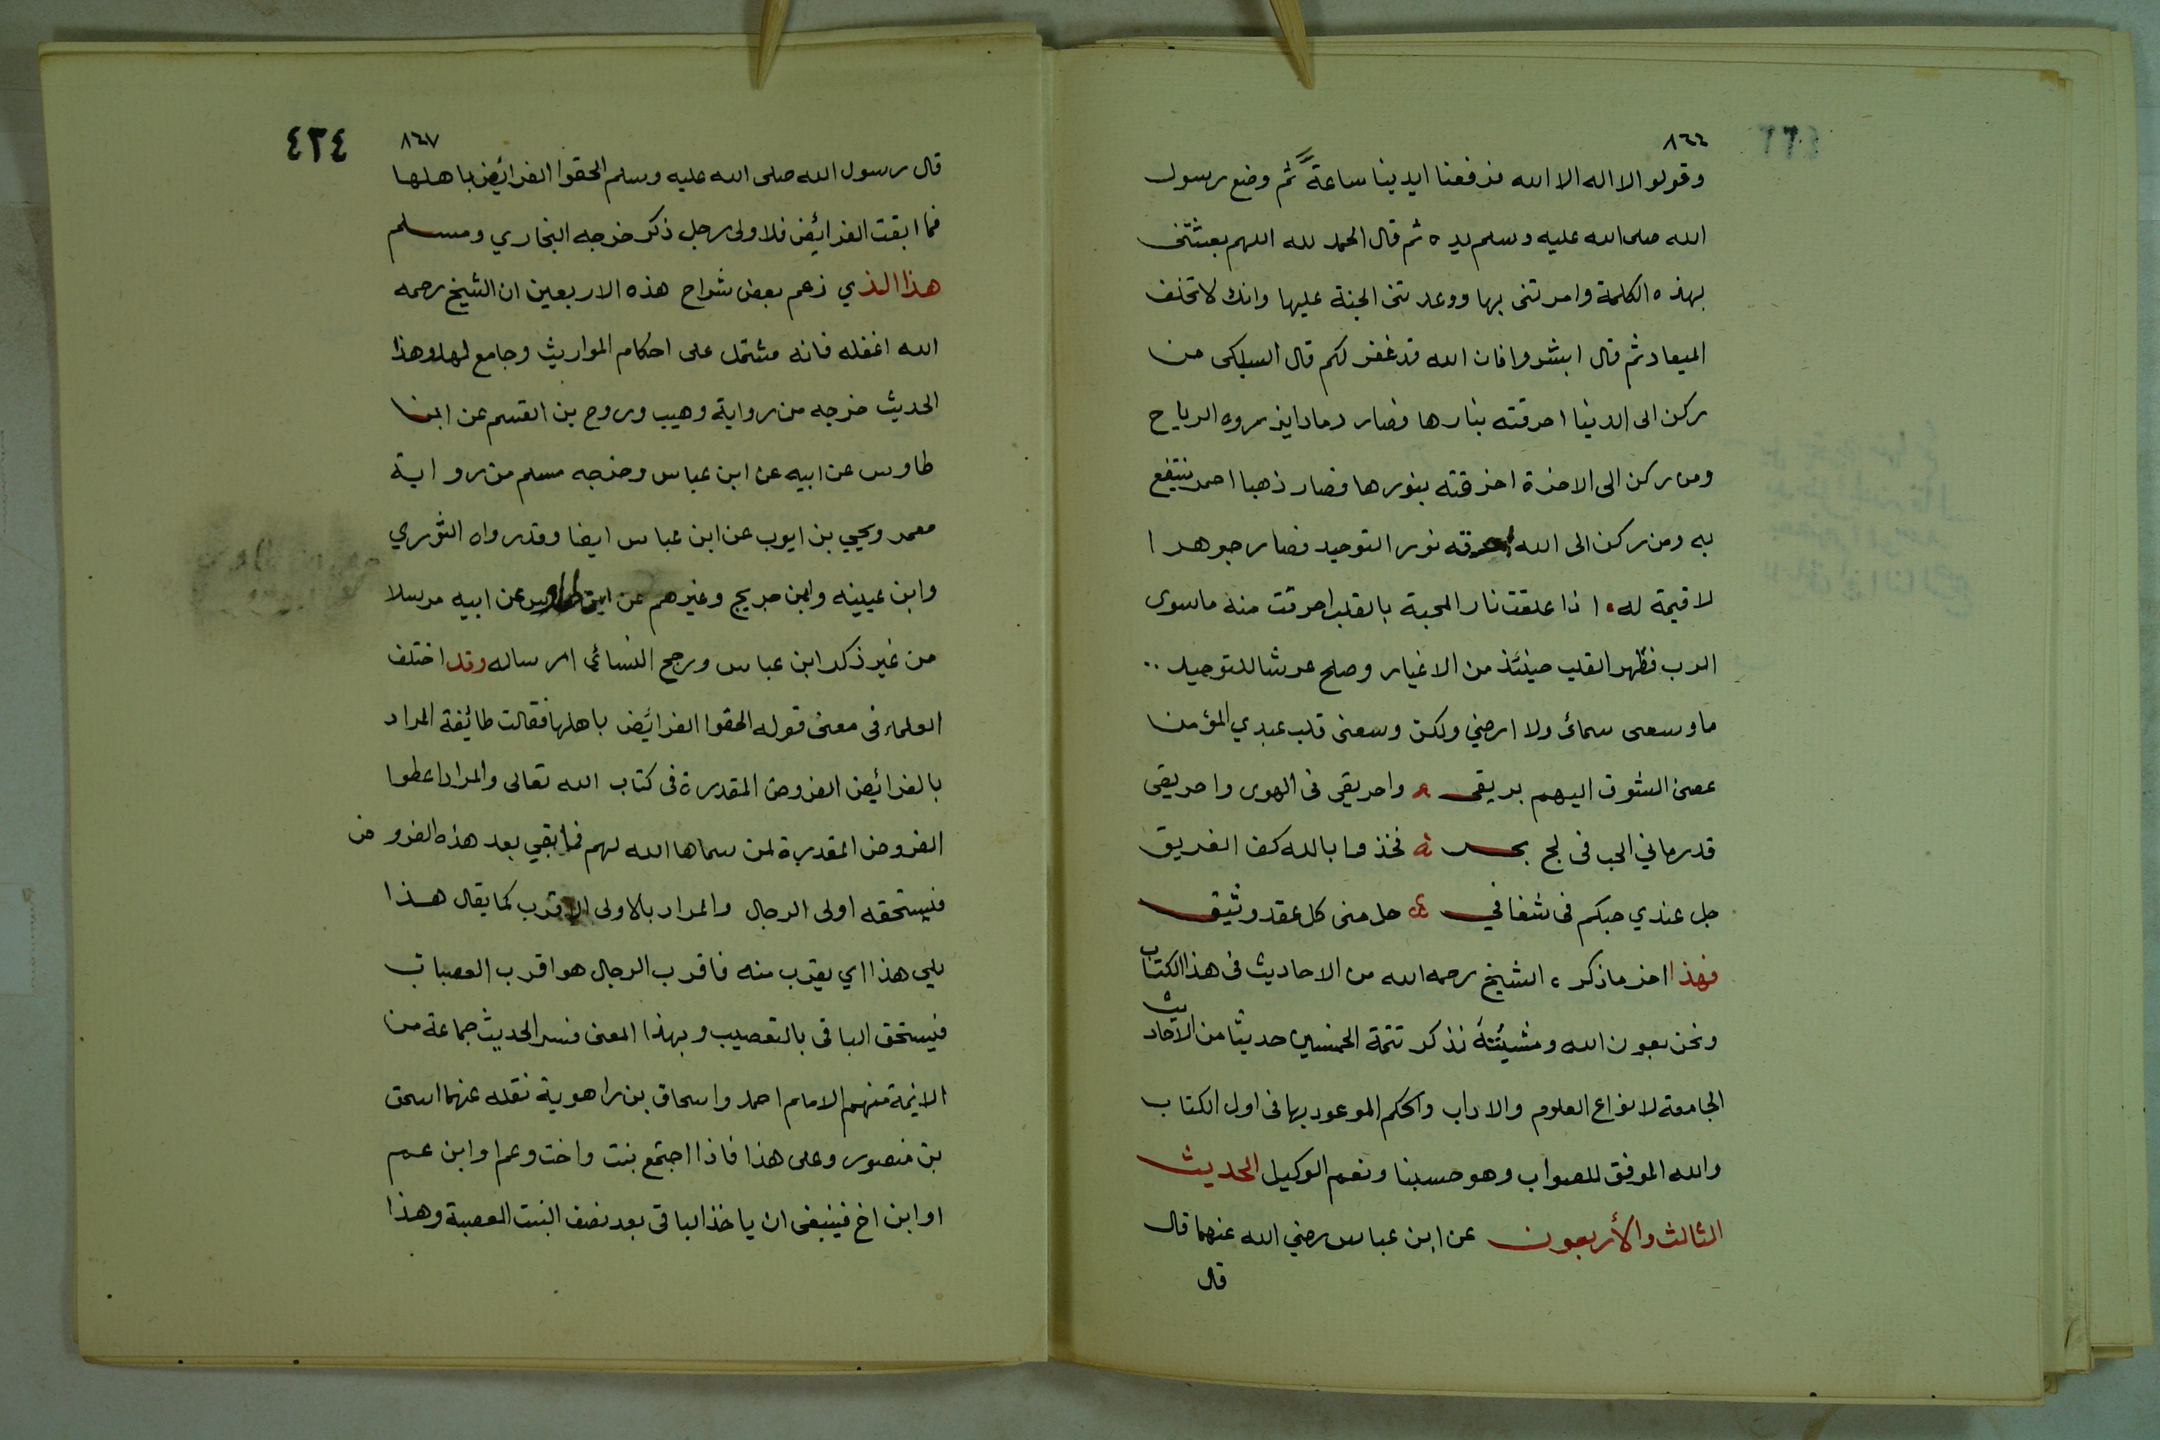 ٨٦٦
وقولو الا اله الا الله فرفعنا ايدينا ساعة ثم وضع رسول
الله صلى الله عليه وسلم يده ثم قال الحمد لله اللهم بعثتنى
بهذه الكلمة وامرتنى بها ووعدتنى الجنة عليها وانك لا تخلف
الميعاد ثم قال ابشروا فان الله قد غفر لكم قال الشبلى من
ركن الى الدنيا احرقته بنارها فصار رمادا يذروه الرياح
ومن ركن الى الاخرة احرقته بنورها فصار ذهبا احمر ينتفع
به ومن ركن الى الله احرقه نور التوحيد فصار جوهرا
لا قيمة له اذا علقت نار المحبة بالقلب احرقت منه ما سوى
الرب فظهر القلب حينئذ من الاغيار وصلح عرشا للتوحيد
ما وسعى سمائى ولا ارضي ولكن وسعنى قلب عبدي المؤمن
غصنى الشوق اليهم بريقى واحريقى فى الهوى واحريقى
قد رماني الحب فى لج بحر فخذوا بالله كف الغريق
حل عندي حبكم فى شغافي حل منى كل عقد وثيق
فهذا اخر ما ذكره الشيخ رحمه الله من الاحاديث فى هذا الكتاب
ونحن بعون الله ومشيئته نذكر تتمة الخمسين حديثا من الاحاديث
الجامعة لانواع العلوم والاداب والحكم الموعود بها فى اول الكتاب
والله الموفق للصواب وهو حسبنا ونعم الوكيل الحديث
الثالث والأربعون عن ابن عباس رضي الله عنهما قال
قال
٨٦٧
٤٣٤
قال رسول الله صلى الله عليه وسلم الحقوا الفرائض باهلها
فما ابقت الفرائض فلاولى رجل ذكر خرجه البخاري ومسلم
هذا الذي زعم بعض شراح هذه الاربعين ان الشيخ رحمه
الله اغفله فانه مشتمل على احكام المواريث وجامع لها وهذا
الحديث خرجه من رواية وهيب وروح بن القسم عن ابن
طاوس عن ابيه عن ابن عباس وخرجه مسلم من رواية
معمر ويحيي بن ايوب عن ابن عباس ايضا وقد رواه الثوري
وابن عيينه وابن جريج وغيرهم عن ابن طاوس عن ابيه مرسلا
من غير ذكر ابن عباس ورجح النسائى ارساله وقد اختلف
العلماء فى معنى قوله الحقوا الفرائض باهلها فقالت طائفة المراد
بالفرائض الفروض المقدرة فى كتاب الله تعالى والمراد اعطوا
الفروض المقدرة لمن سماها الله لهم فما بقي بعد هذه الفروض
فيستحقه اولى الرجال والمراد بالاولى الاقرب كما يقال هذا
يلي هذا اي يقرب منه فاقرب الرجال هو اقرب العصبات
فيستحق الباقى بالتعصيب وبهذا المعنى فسر الحديث جماعة من
الايمة منهم الامام احمد واسحاق بن راهوية نقله عنهما اسحق
بن منصور وعلى هذا فاذا اجتمع بنت واخت وعم او ابن عم
او ابن اخ فينبغى ان ياخذ الباقى بعد نصف البنت العصبة وهذا